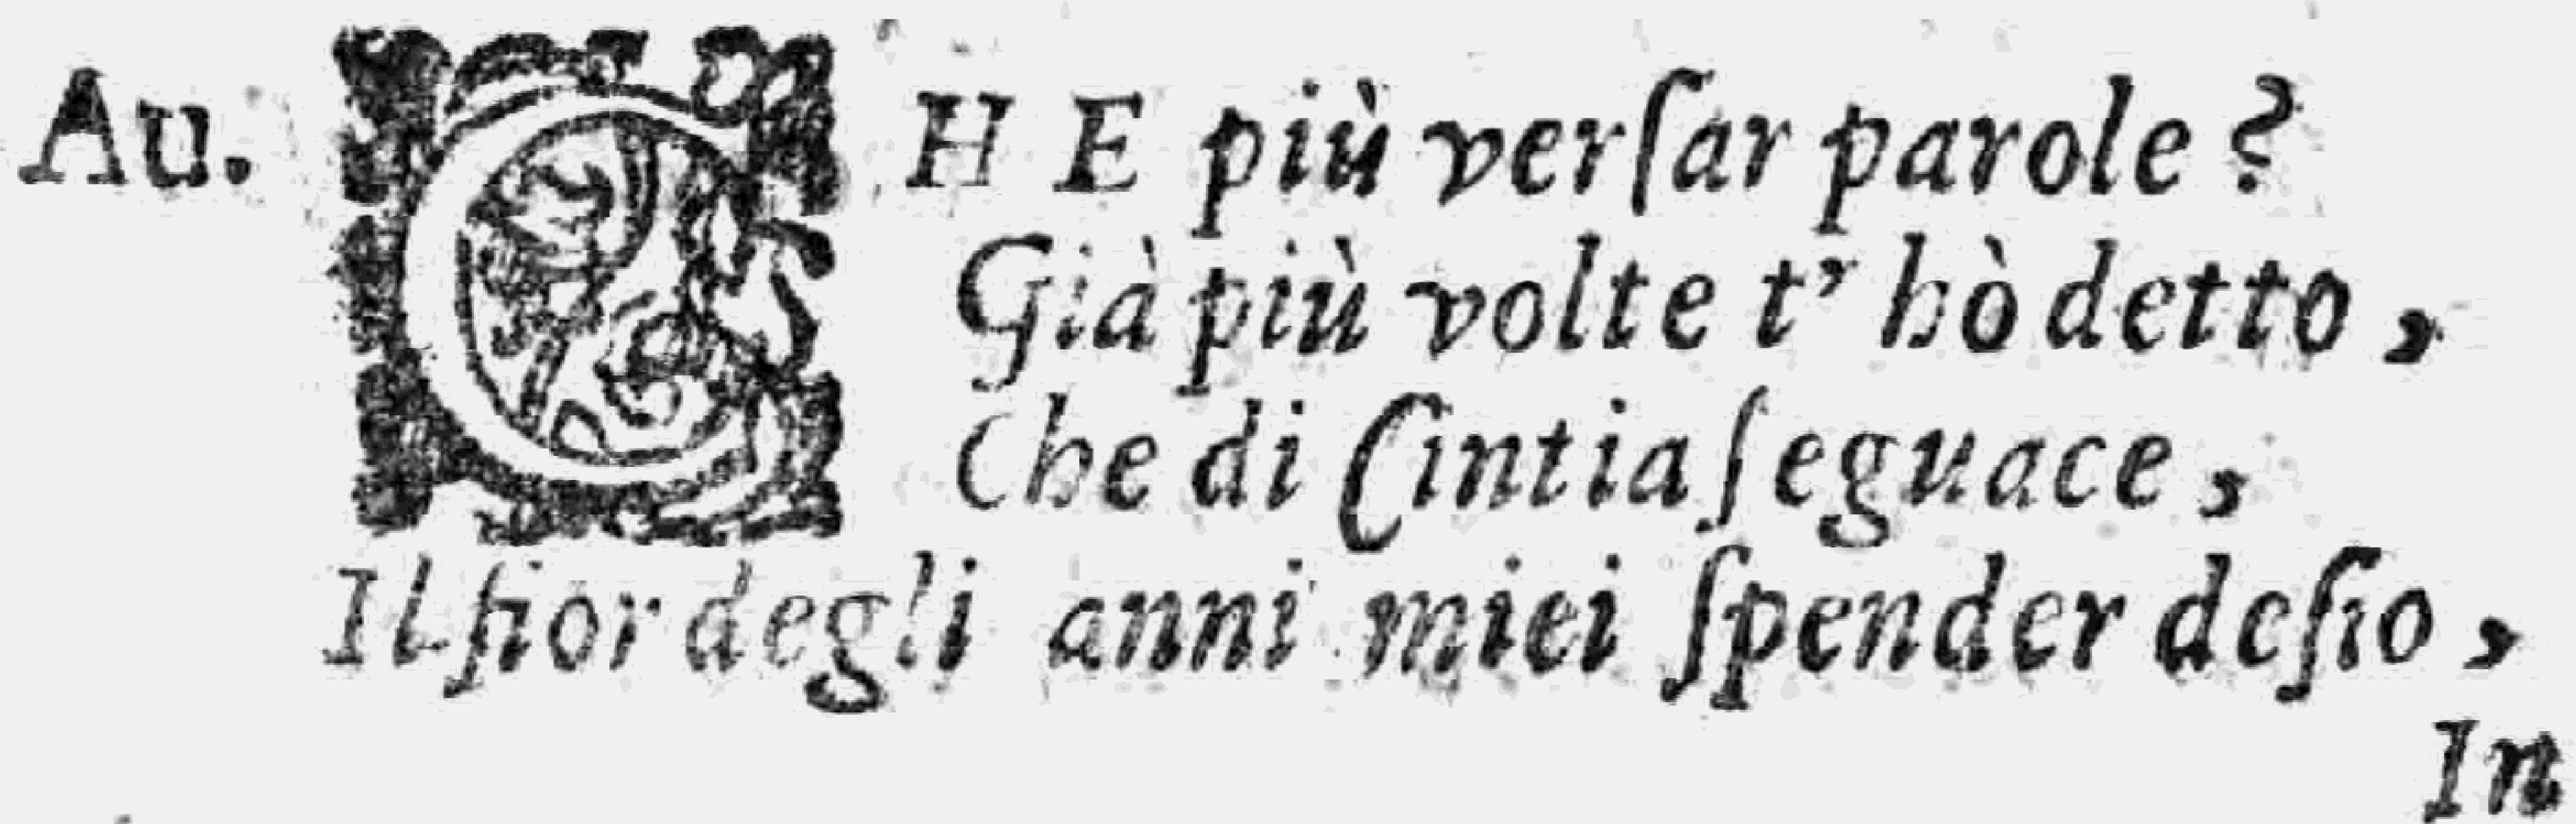 Au. CHE più verſar parole?
Già più volte t' hò detto,
Che di Cintia ſeguace,
Il fior degli anni miei ſpender deſio,
In